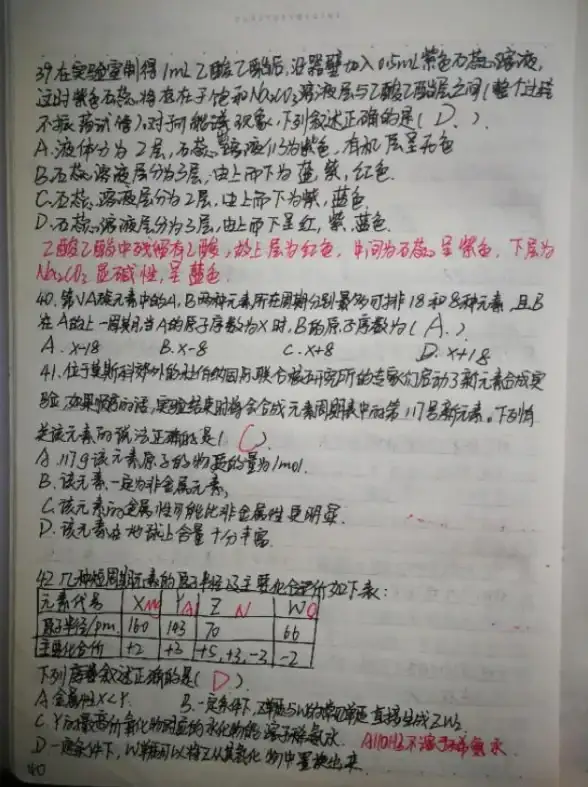 39.在实验室制得1mL乙酸乙酯后,沿器壁加入0.5mL紫色石蕊溶液,
这时紫色石蕊将存在于饱和Na₂CO₃溶液层与乙酸乙酯层之间(整个过程
不振荡试管),对可能出现现象,下列叙述正确的是(D.)
A.液体分为2层,石蕊溶液仍为紫色,有机层呈无色
B.石蕊溶液层分为3层,由上而下为蓝,紫,红色.
C.石蕊溶液层分为2层,由上而下为紫,蓝色.
D.石蕊溶液层分为3层,由上而下呈红,紫,蓝色.
乙酸乙酯中残留有乙酸,故上层为红色,中间为石蕊呈紫色,下层为
Na₂CO₃显碱性,呈蓝色.
40.第ⅥA族元素中的A,B两种元素所在周期分别最多可排18和8种元素,且B
在A的上一周期,当A的原子序数为X时,B的原子序数为(A.)
A.x-18 B.x-8 C.x+8 D.x+18
41.位于莫斯科郊外的杜伯纳国际联合核子研究所的专家们启动了新元素合成实
验,如果顺利的话,实验结束时将会合成元素周期表中的第117号新元素。下列有
关该元素的说法正确的是(C)
A.117g该元素原子的物质的量为1mol.
B.该元素一定为非金属元素,
C.该元素的金属性可能比非金属性更明显.
D.该元素在地球上含量十分丰富.
42.几种短周期元素的原子半径及主要化合价如下表:
元素代号 X Mg Y Al Z N W O
原子半径/pm 160 143 70 66
主要化合价 +2 +3 +5,+3,-3 -2
下列序叙述正确的是(D)
A.金属性X<Y. B.一定条件下,Z单质与W的常见单质直接生成ZW₂
C.Y的最高价氧化物对应的水化物能溶于稀氨水. Al(OH)₃不溶于稀氨水.
D.一定条件下,W单质可以将Z从其氢化物中置换出来.
40